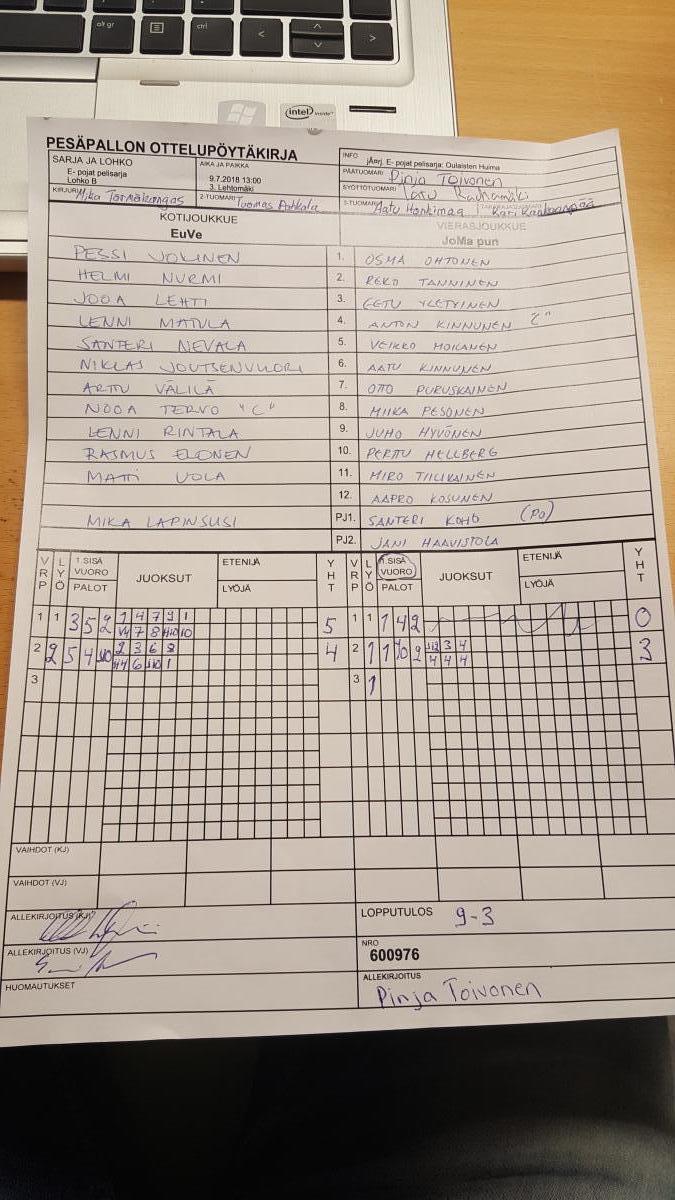 alt gr
ctrl
<
>
intel inside
PESÄPALLON OTTELUPÖYTÄKIRJA
SARJA JA LOHKO
E- pojat pelisarja
Lohko B
AIKA JA PAIKKA
9.7.2018 13:00
3. Lehtomäki
INFO
jÄrrj. E- pojat pelisarja: Oulaisten Huima
PÄÄTUOMARI Pinja Toivonen
SYÖTTÖTUOMARI Tatu Rauhamäki
KIRJURI Mika Tormäkangas
2-TUOMARI Tuomas Anhkala
3-TUOMARI Aatu Honkimaa
Kari Kankaanpää
KOTIJOUKKUE
EuVe
VIERASJOUKKUE
JoMa pun
PESSI VOLINEN 1. OSMA OHTONEN
HELMI NURMI 2. REKO TANNINEN
JOOA LEHTI 3. EETU YLETYINEN
LENNI MATULA 4. ANTON KINNUNEN "C"
SANTERI NEVALA 5. VEIKKO MOILANEN
NIKLAS JOUTSENVUORI 6. AATU KINNUNEN
ARTTU VÄLILÄ 7. OTTO PURUSKAINEN
NOOA TERVO "C" 8. MIIKA PESONEN
LENNI RINTALA 9. JUHO HYVÖNEN
RASMUS ELONEN 10. PERTTU HELLBERG
MATTI UOLA 11. MIRO TIILIKAINEN
12. AAPRO KOSUNEN
MIKA LAPINSUSI PJ1. SANTERI KOHO (PO)
PJ2. JANI HAAVISTOLA
VRP LYÖ 1.SISÄ VUORO PALOT JUOKSUT ETENIJÄ LYÖJÄ YHT VRP LYÖ 1.SISÄ VUORO PALOT JUOKSUT ETENIJÄ LYÖJÄ YHT
1 1 3 5 2 1 4 7 9 1 5 1 1 1 4 2 0
7 8 10
2 2 5 4 2 3 6 8 4 2 1 1 2 3 4 3
6 1 4 4 4
3 3 1
VAIHDOT (KJ)
VAIHDOT (VJ)
ALLEKIRJOITUS (KJ)
LOPPUTULOS 9-3
ALLEKIRJOITUS (VJ)
NRO
600976
HUOMAUTUKSET
ALLEKIRJOITUS
Pinja Toivonen